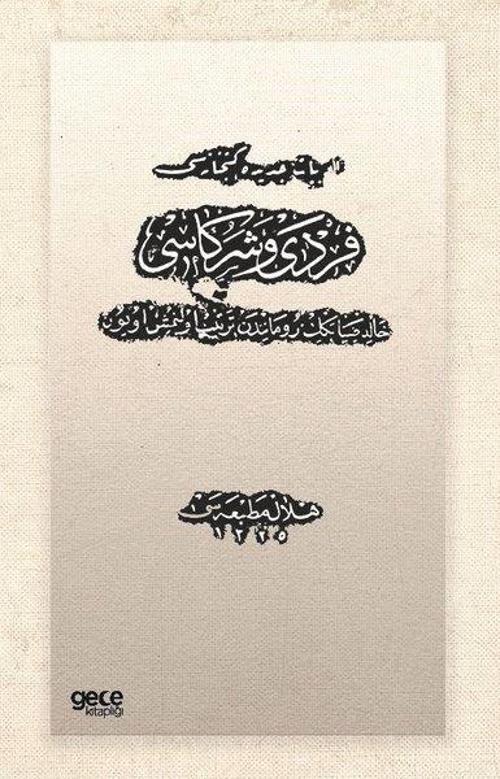 ادبيات جديده كتبخانه سی
فردی وشركاسی
خالد ضيا بكك رومانندن ترتيب اولنمش اويون
هلال مطبعه سی
١٣٢٥
gece
kitaplığı